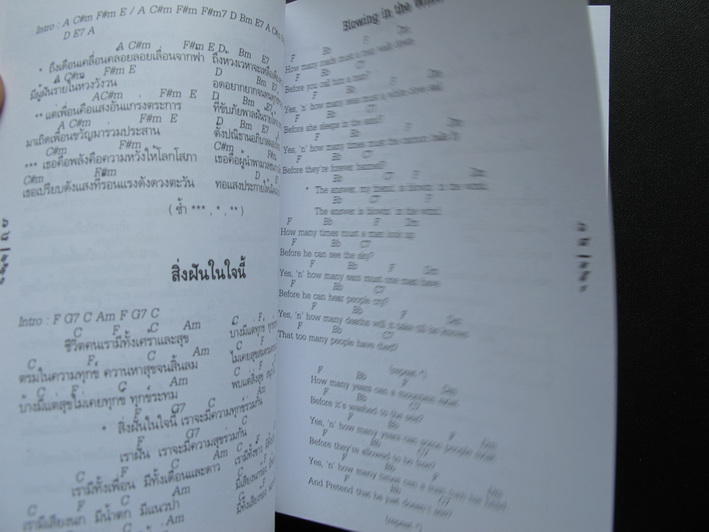 Intro : A C#m F#m E / A C#m F#m F#m7 D Bm E7 A
D E7 A
A C#m F#m E D Bm E7
* ถึงเดือนเคลื่อนคล้อยลอยเลื่อนจากฟ้า
A C#m F#m E D Bm E7
มีผู้ฝันรายในห้วงวังวน
A C#m F#m E D Bm E7
** แต่เพื่อนคือแสงอันแกร่งตระการ
A C#m F#m E D Bm E7
มาเถิดเพื่อนขวัญมารวมประสาน
C#m F#m C#m
*** เธอคือพลังคือความหวังให้โลกโสภา เธอคือผู้นำ
C#m F#m D E
เธอเปรียบดังแสงที่รอนแรงดังดวงตะวัน ทอแสงประกาย
( ซ้ำ *** , * , ** )
สิ่งฝันในใจนี้
Intro : F G7 C Am F G7 C
C F C Am
ชีวิตคนเรามีทั้งเศร้าและสุข บ้างมีแต่ทุกข์
C F C Am
ตรมในความทุกข์ ควานหาสุขจนสิ้นลม
C F C Am
บ้างมีแต่สุขไม่เคยทุกข์ ทุกข์ระทม
F G7 C
* สิ่งฝันในใจนี้ เราจะมีความทุกข์ร่วมกัน
F G7 C
เราฝัน เราจะมีความสุขร่วมกัน
C F C Am
เรามีทั้งเพื่อน มีทั้งเดือนและดาว
C F C Am
เรามีเสียงนก มีน้ำตก มีแนวป่า
Blowing in the Wind
F Bb F Dm
How many roads must a man walk down
F Bb C7
Before you call him a man?
F Bb F Dm
Yes, 'n' how many seas must a white dove sail
F Bb C7
Before she sleeps in the sand?
F Bb F Dm
Yes, 'n' how many times must the cannon balls fly
F Bb C7
Before they're forever banned?
Bb C7 F Dm
* The answer, my friend, is blowin' in the wind,
Bb C7 F
The answer is blowin' in the wind.
F Bb F Dm
How many times must a man look up
F Bb C7
Before he can see the sky?
F Bb F Dm
Yes, 'n' how many ears must one man have
F Bb C7
Before he can hear people cry?
F Bb F Dm
Yes, 'n' how many deaths will it take till he knows
F Bb C7
That too many people have died?
(repeat *)
F Bb F Dm
How many years can a mountain exist
F Bb C7
Before it's washed to the sea?
F Bb F Dm
Yes, 'n' how many years can some people exist
F Bb C7
Before they're allowed to be free?
F Bb F Dm
Yes, 'n' how many times can a man turn his head
F Bb C7
And Pretend that he just doesn't see?
(repeat *)